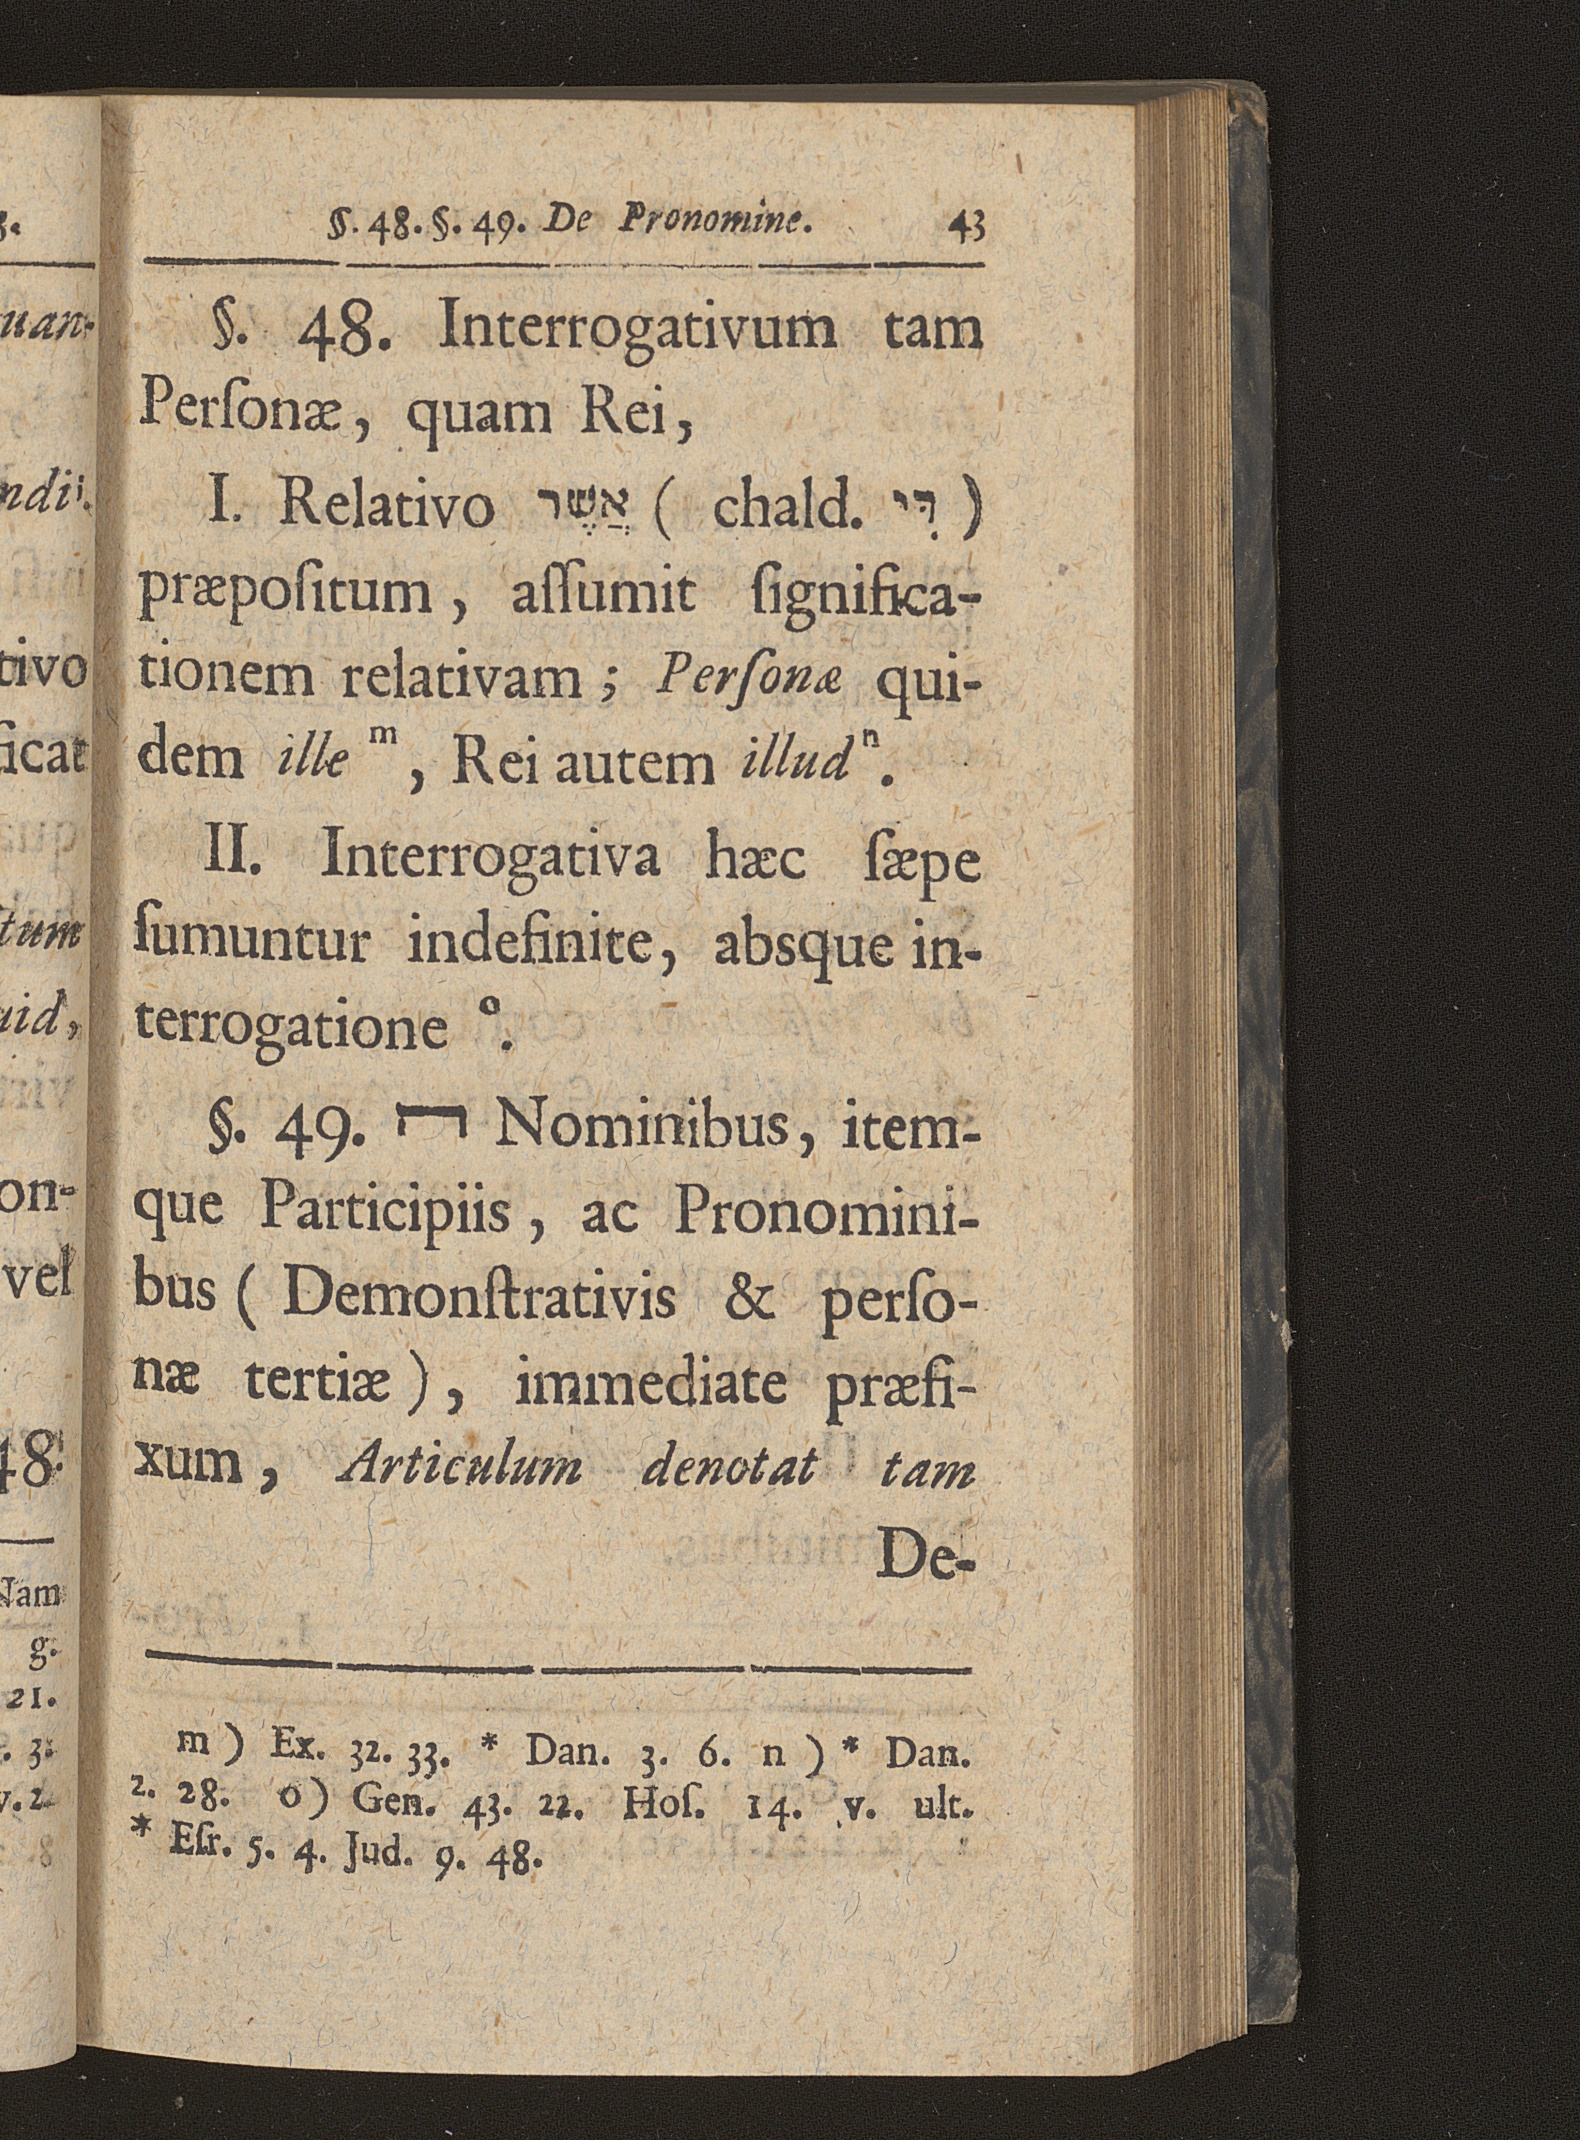 §. 48. §. 49. De Pronomine. 43
§. 48. Interrogativum tam
Perſonæ, quam Rei,
I. Relativo אֲשֶׁר ( chald. דִּי )
præpoſitum, aſſumit ſignifica-
tionem relativam; Perſonæ qui-
dem ille m, Rei autem illud n.
II. Interrogativa hæc ſæpe
ſumuntur indefinite, absque in-
terrogatione o.
§. 49. Nominibus, item-
que Participiis, ac Pronomini-
bus ( Demonſtrativis & perſo-
næ tertiæ ), immediate præfi-
xum, Articulum denotat tam
De-
m ) Ex. 32. 33. * Dan. 3. 6. n ) * Dan.
2. 28. o ) Gen. 43. 22. Hoſ. 14. v. ult.
* Eſr. 5. 4. Jud. 9. 48.